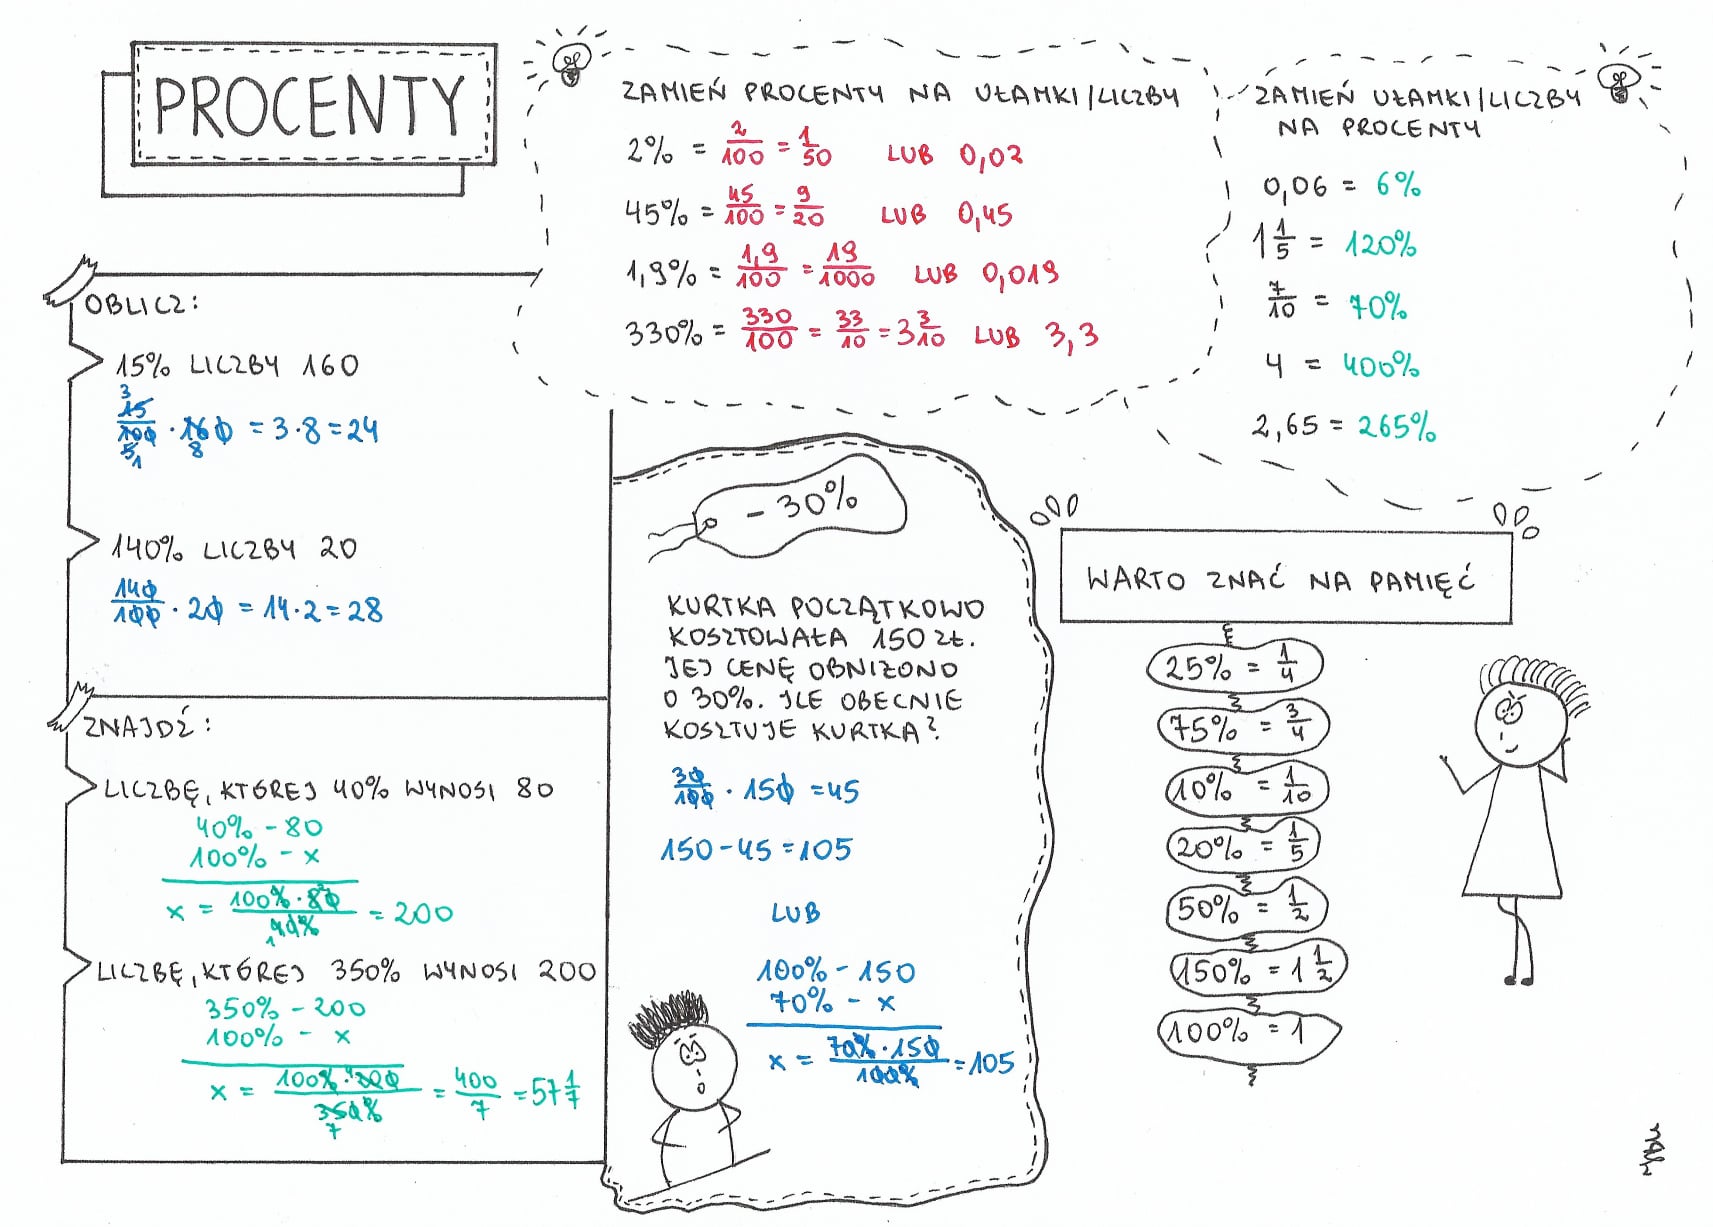 PROCENTY
ZAMIEŃ PROCENTY NA UŁAMKI/LICZBY
2% = 2/100 = 1/50 LUB 0,02
45% = 45/100 = 9/20 LUB 0,45
1,9% = 1,9/100 = 19/1000 LUB 0,019
330% = 330/100 = 33/10 = 3 3/10 LUB 3,3
ZAMIEŃ UŁAMKI/LICZBY
NA PROCENTY
0,06 = 6%
1 1/5 = 120%
7/10 = 70%
4 = 400%
2,65 = 265%
OBLICZ:
15% LICZBY 160
3
15/100 · 160 = 3·8 = 24
5 1 8
140% LICZBY 20
140/100 · 20 = 14·2 = 28
ZNAJDŹ:
LICZBĘ, KTÓREJ 40% WYNOSI 80
40% - 80
100% - x
x = 100%·80/40% = 200
LICZBĘ, KTÓREJ 350% WYNOSI 200
350% - 200
100% - x
x = 100%·200/350% = 400/7 = 57 1/7
7
- 30%
KURTKA POCZĄTKOWO
KOSZTOWAŁA 150 ZŁ.
JEJ CENĘ OBNIŻONO
O 30%. ILE OBECNIE
KOSZTUJE KURTKA?
30/100 · 150 = 45
150 - 45 = 105
LUB
100% - 150
70% - x
x = 70%·150/100% = 105
WARTO ZNAĆ NA PAMIĘĆ
25% = 1/4
75% = 3/4
10% = 1/10
20% = 1/5
50% = 1/2
150% = 1 1/2
100% = 1